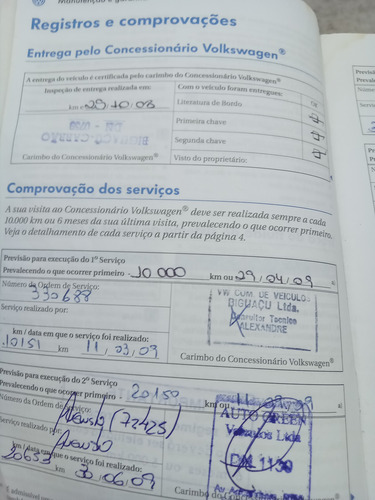 Manutenção e
Registros e comprovações
Entrega pelo Concessionário Volkswagen®
A entrega do veículo é certificada pelo carimbo do Concessionário Volkswagen®
Inspeção de entrega realizada em:
Com o veículo foram entregues:
km e 29 10 08
Literatura de Bordo:
Primeira chave
Segunda chave
Carimbo do Concessionário Volkswagen®
Visto do proprietário:
Comprovação dos serviços
A sua visita ao Concessionário Volkswagen® deve ser realizada sempre a cada
10.000 km ou 6 meses da sua última visita, prevalecendo o que ocorrer primeiro.
Veja o detalhamento de cada serviço a partir da página 4.
Previsão para execução do 1º Serviço
Prevalecendo o que ocorrer primeiro - 10 000 km ou 29 / 04 / 09
Número da Ordem de Serviço:
330688
Serviço realizado por:
VW COM. DE VEICULO
BIGUAÇU Ltda.
Consultor Tecnico
ALEXANDRE
km / data em que o serviço foi realizado:
10151 km 11 / 03 / 09
Carimbo do Concessionário Volkswagen®
Previsão para execução do 2º Serviço
Prevalecendo o que ocorrer primeiro - 20150 km ou
Número da Ordem de Serviço:
(72425)
Serviço realizado por:
AUTO GREEN
Veículos Ltda
DN 1150
km / data em que o serviço foi realizado:
20653 km 30 / 06 / 09
Carimbo do